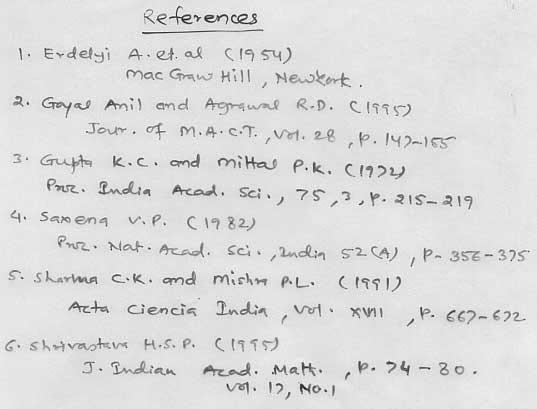 References
1. Erdelyi A. et. al (1954)
Mac Graw Hill, Newyork.
2. Goyal Anil and Agrawal R.D. (1995)
Jour. of M.A.C.T., Vol. 28, P. 147-155
3. Gupta K.C. and Mittal P.K. (1972)
Proc. India Acad. Sci., 75, 3, P. 215-219
4. Saxena V.P. (1982)
Proc. Nat. Acad. Sci., India 52(A), P- 356-375
5. Sharma C.K. and Mishra P.L. (1991)
Acta Ciencia India, Vol. XVII, P. 667-672
6. Shrivastava H.S.P. (1995)
J. Indian Acad. Math., P. 74-80.
Vol. 17, No.1